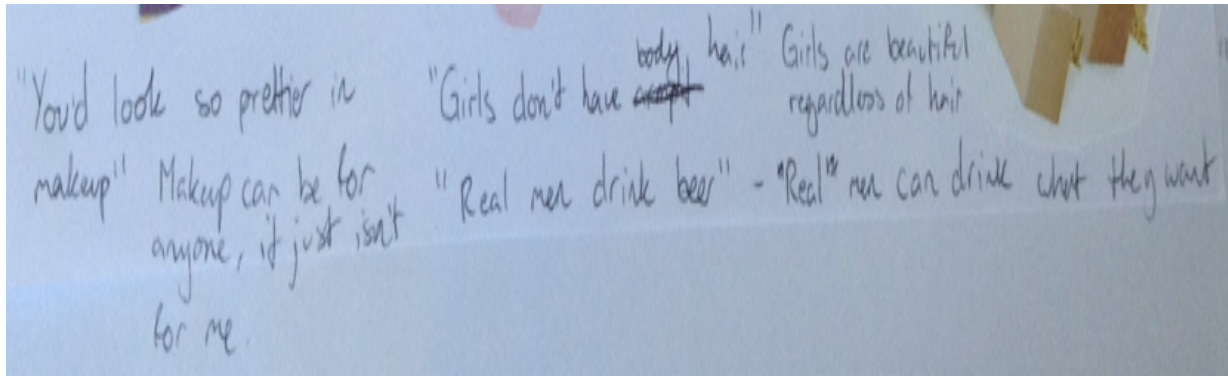 "You'd look so prettier in
makeup" Makeup can be for
anyone, it just isn't
for me.
"Girls don't have body hair" Girls are beautiful
regardless of hair
"Real men drink beer" - "Real" men can drink what they want